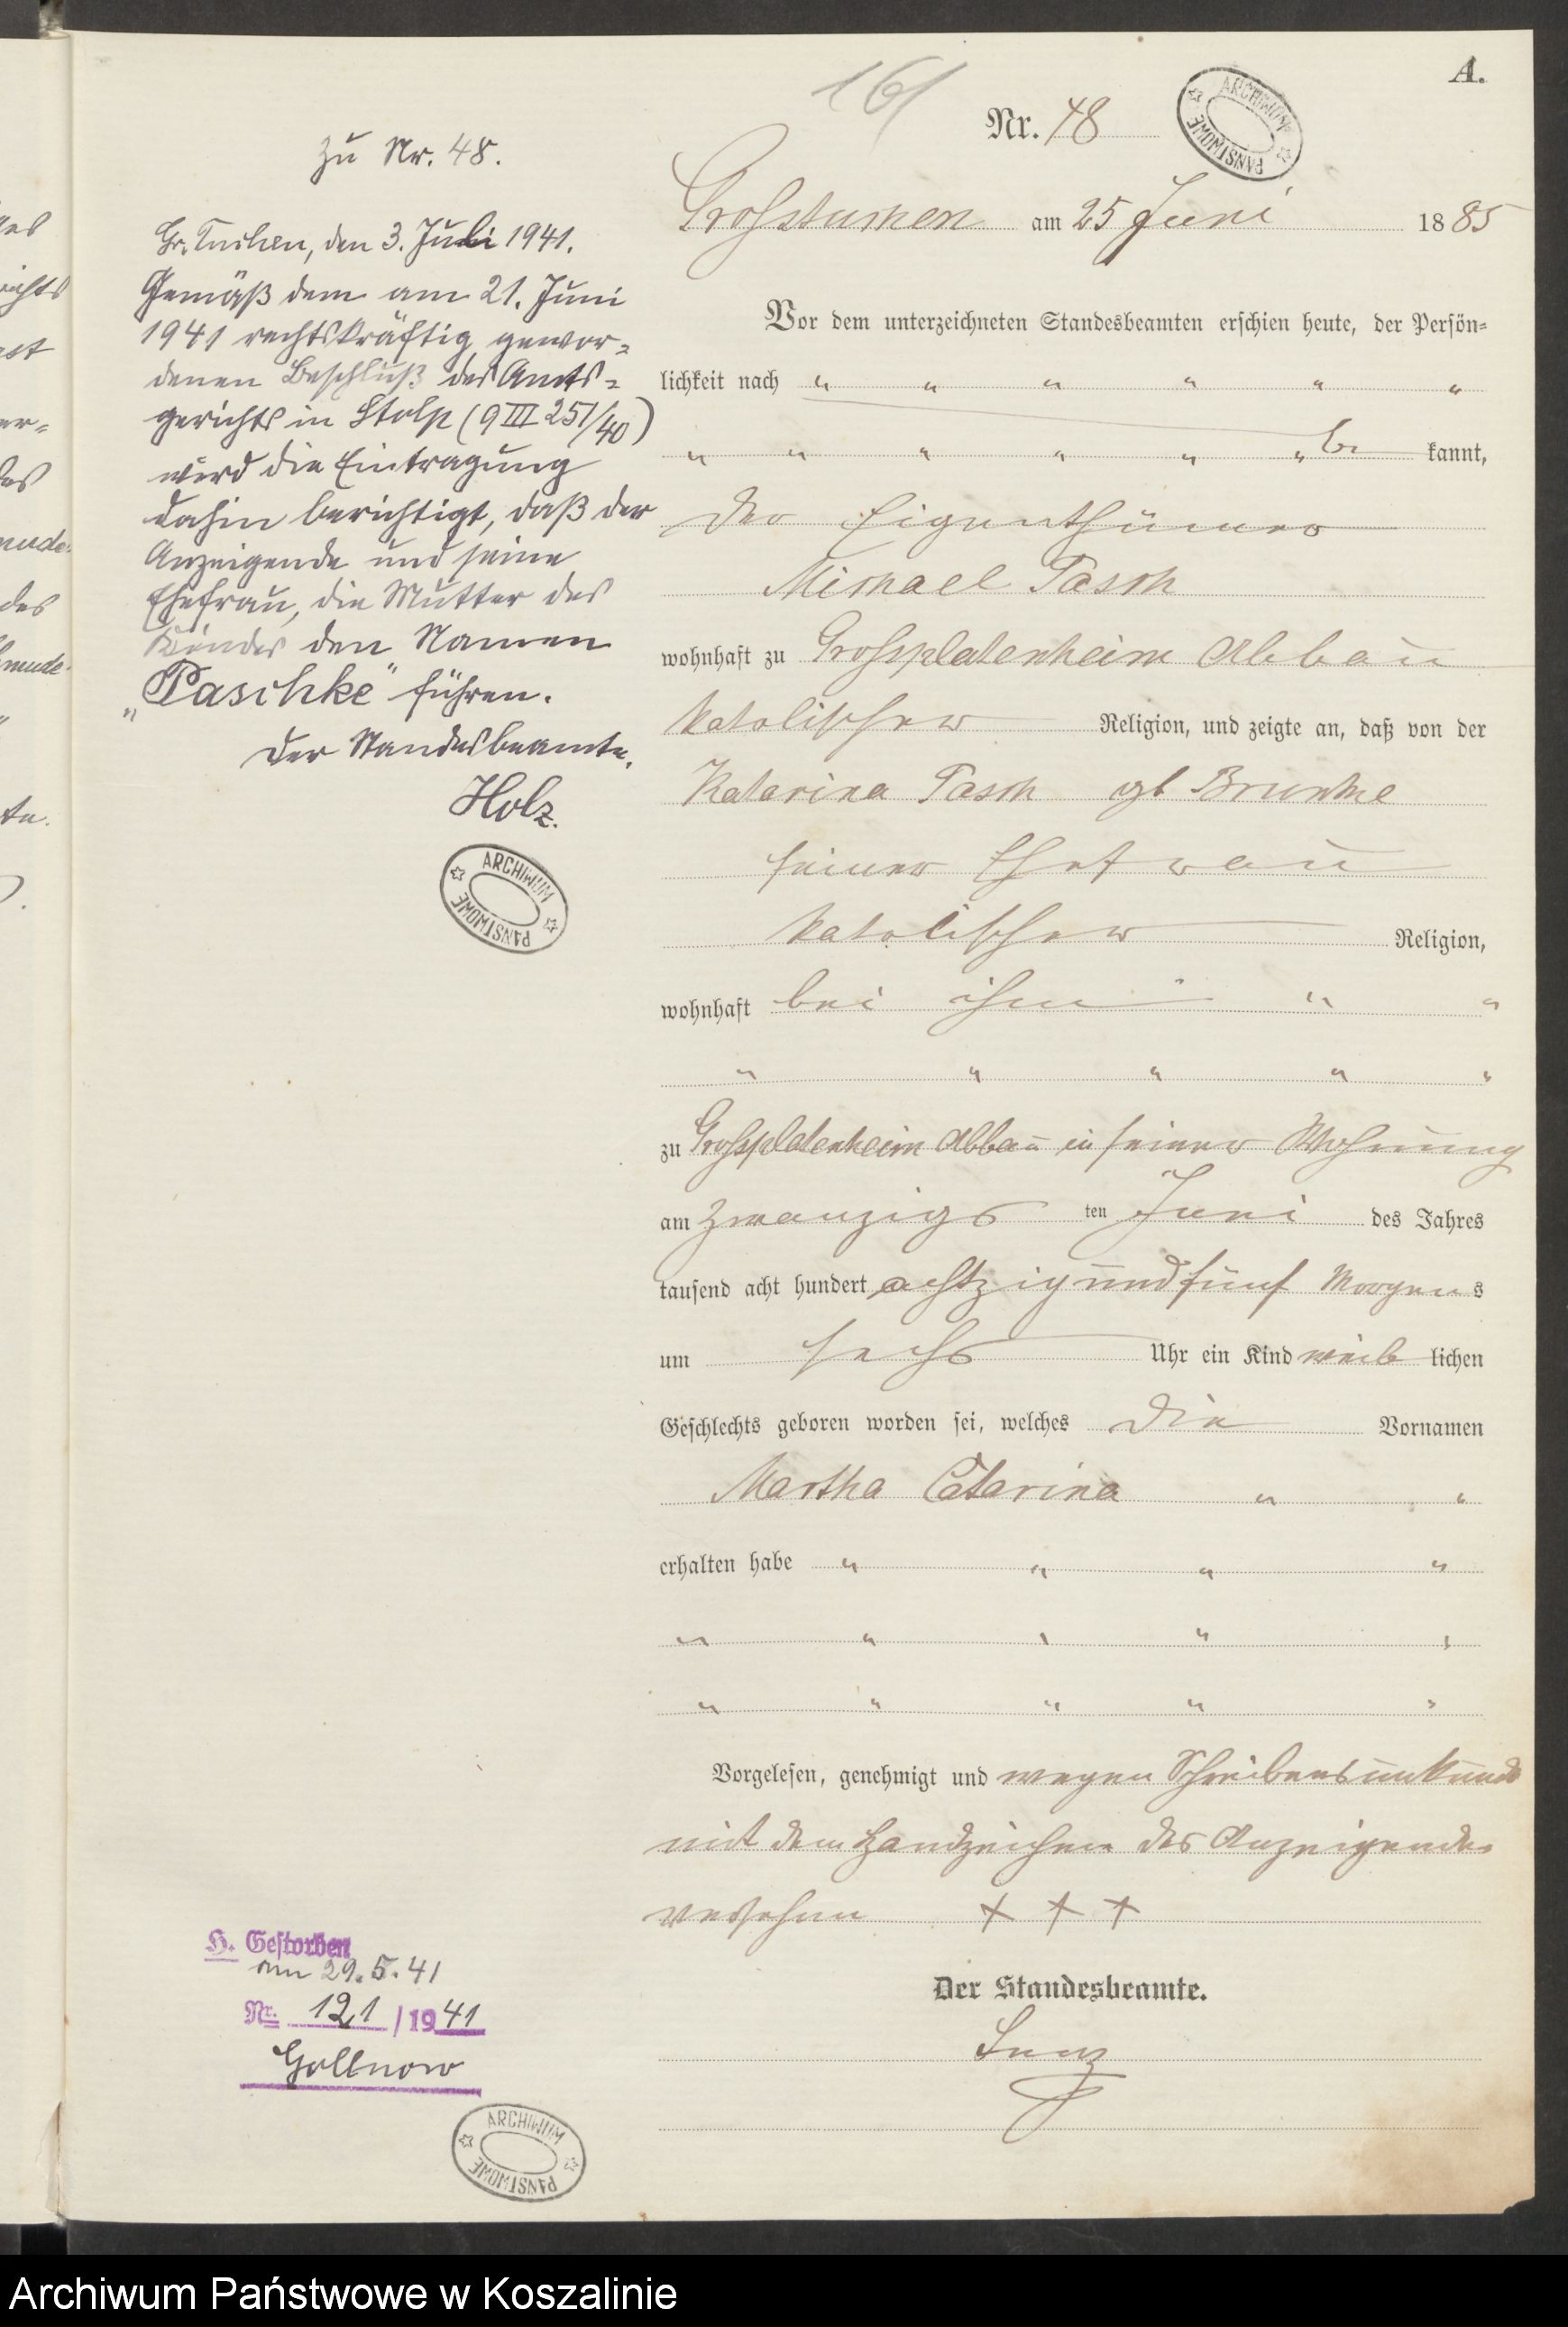 A.
161
Nr. 48
ARCHIWUM PAŃSTWOWE
Grosstuchen am 25 Juni 1885
Vor dem unterzeichneten Standesbeamten erschien heute, der Persön=
lichkeit nach " " " " " "
" " " " " " be kannt,
der Eigenthümer
Michael Pasch
wohnhaft zu Grossplatenheim Abbau
katolischer Religion, und zeigte an, daß von der
Katarina Pasch gb
seiner Ehefrau
katolischer Religion,
wohnhaft bei ihm " " "
" " " " "
zu Grossplatenheim Abbau in seiner Wohnung
am zwanzigs ten Juni des Jahres
tausend acht hundert achtzig und fünf Morgens
um sechs Uhr ein Kind weib lichen
Geschlechts geboren worden sei, welches die Vornamen
Martha Catarina " "
erhalten habe " " " "
" " " " "
" " " " "
Vorgelesen, genehmigt und wegen Schreibensunkunde
mit dem Handzeichen des Anzeigenden
versehen + + +
Der Standesbeamte.
zu Nr. 48.
Gr. Tuchen, den 3. Juli 1941.
Gemäß dem am 21. Juni
1941 rechtskräftig gewor=
denen Beschluß des Amts=
gerichts in Stolp (9 III 251/40)
wird die Eintragung
dahin berichtigt, daß der
Anzeigende und seine
Ehefrau, die Mutter des
Kindes den Namen
„Paschke" führen.
Der Standesbeamte.
Holz.
ARCHIWUM PAŃSTWOWE
H. Gestorben
am 29.5.41
Nr. 121 / 1941
Gollnow
ARCHIWUM PAŃSTWOWE
Archiwum Państwowe w Koszalinie